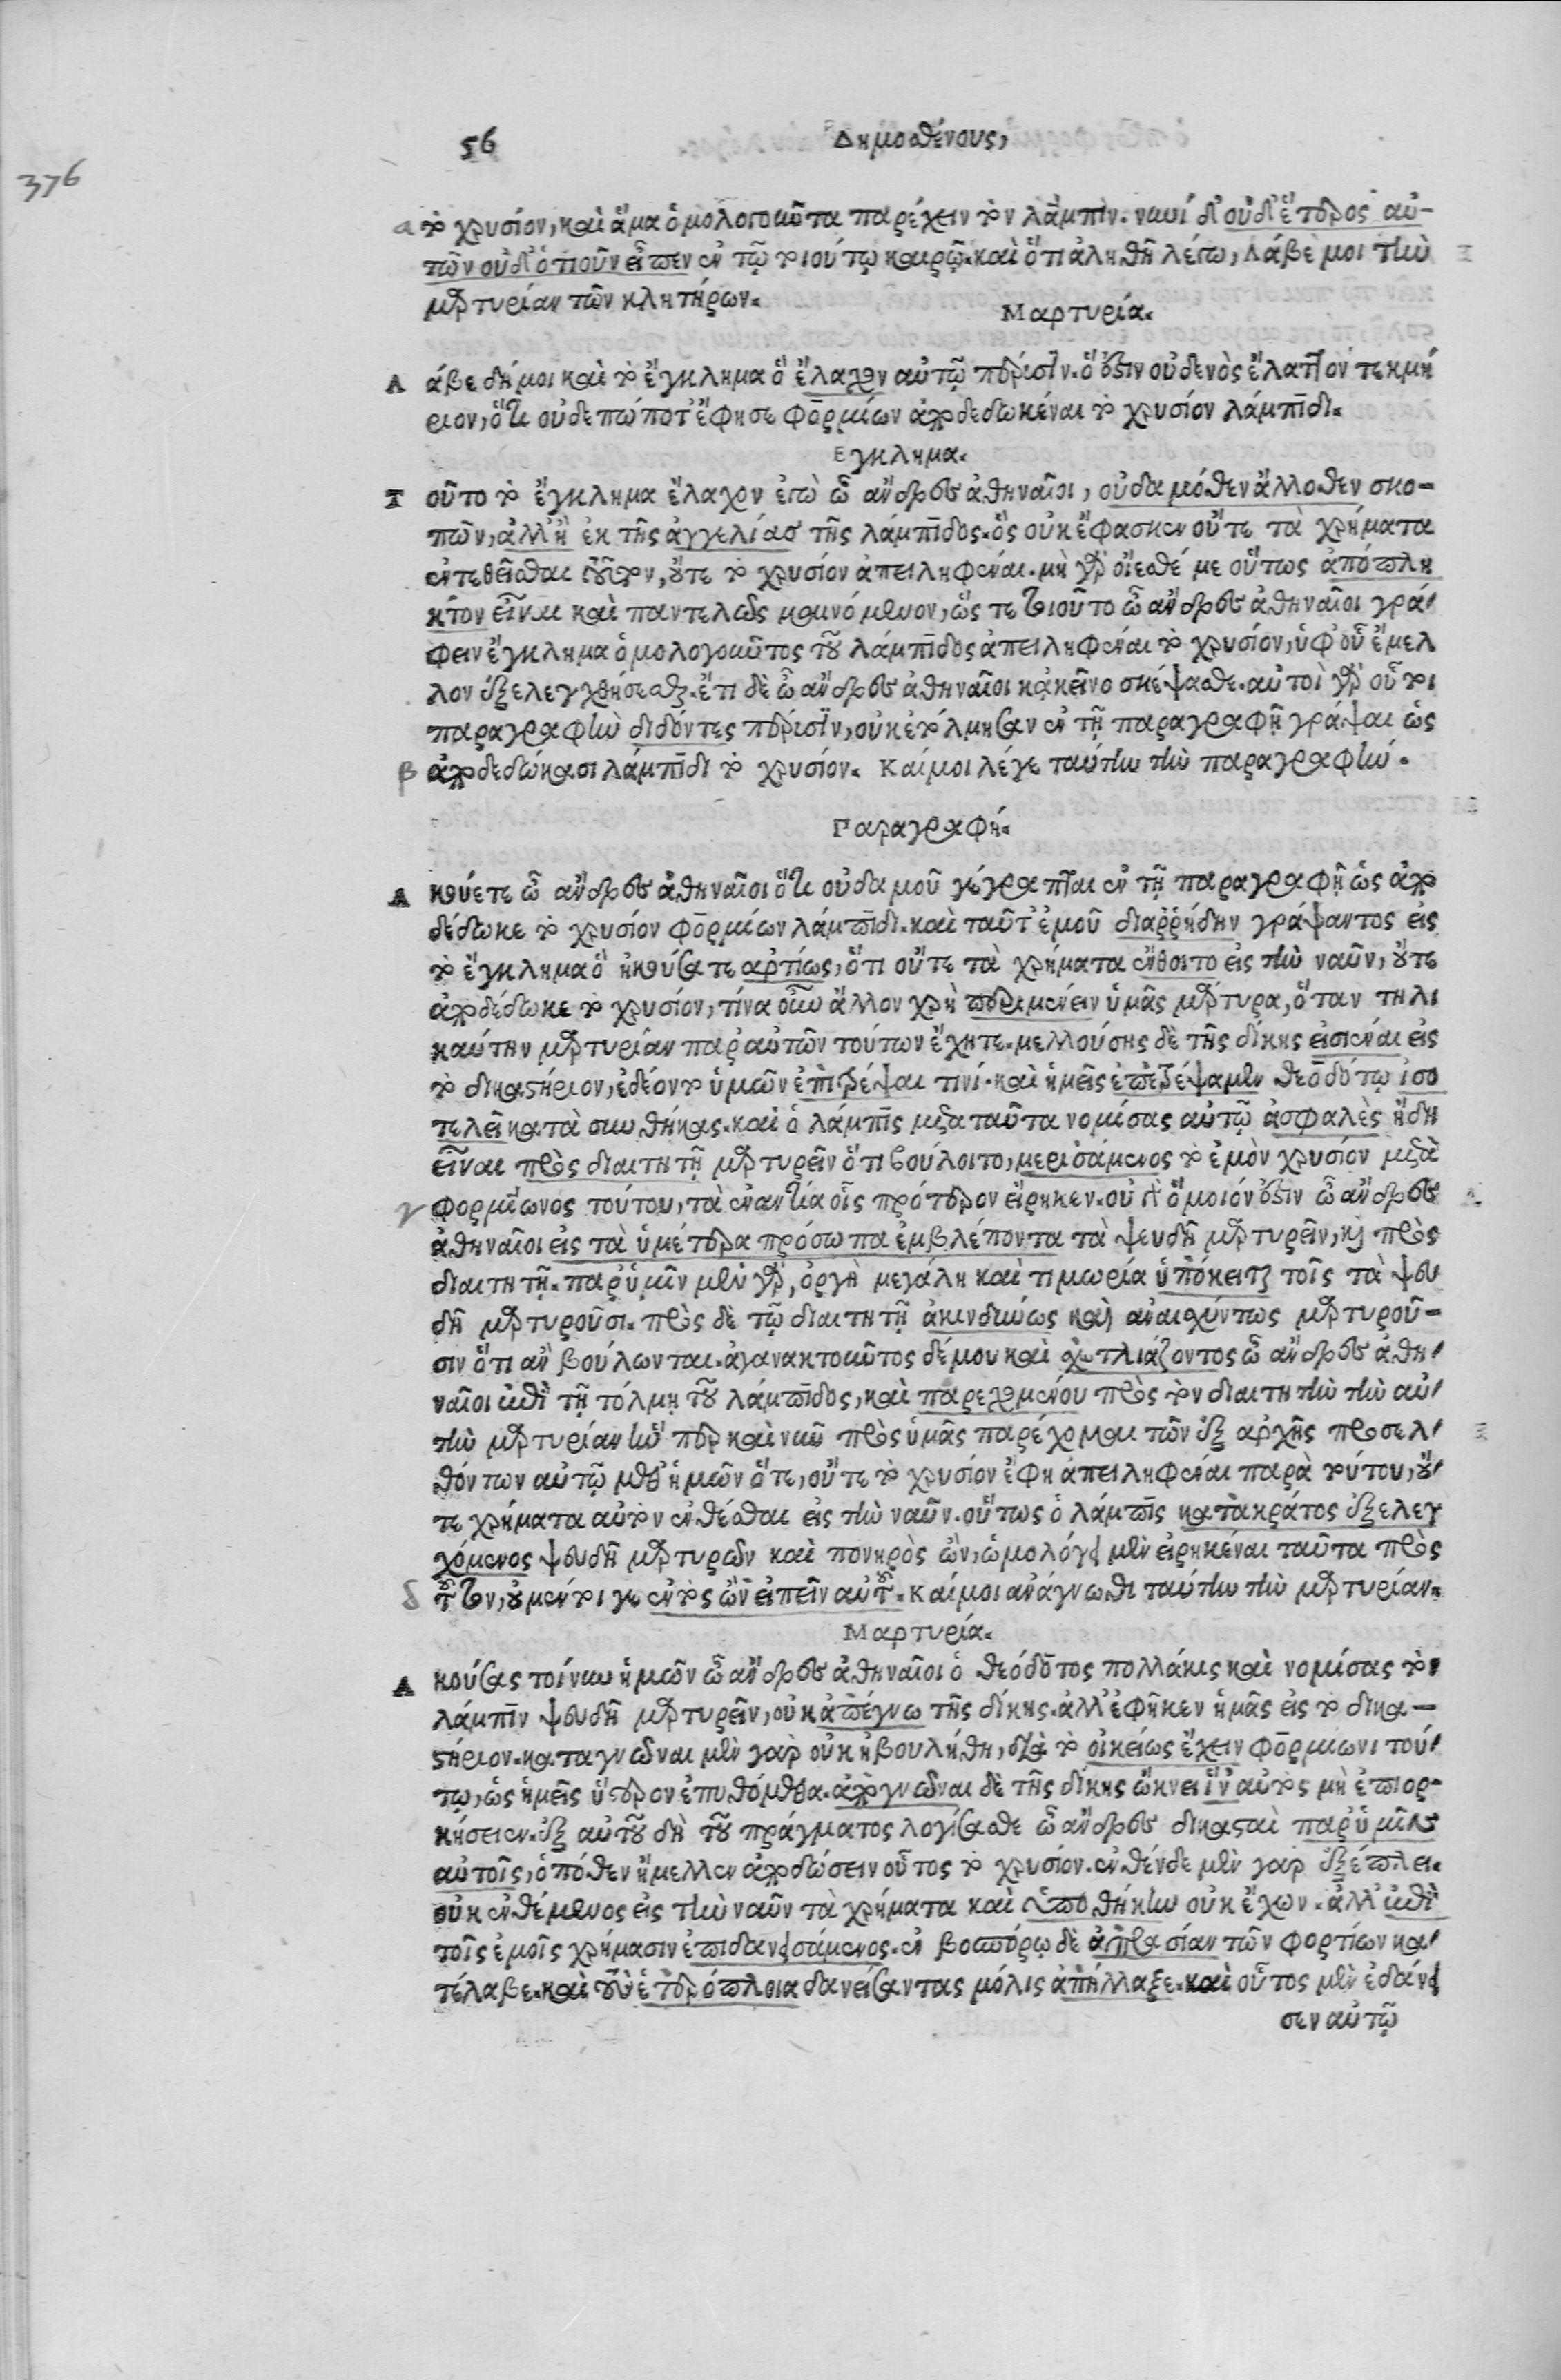 56 Δημοσθένους,
376
α τὸ χρυσίον, καὶ ἅμα ὁμολογοῦντα παρέχειν τὸν λάμπιν. νυνὶ δ' οὐδ' ἕτερος αὐ-
τῶν οὐδ' ὁτιοῦν εἶπεν ἐν τῷ τοιούτῳ καιρῷ. καὶ ὅτι ἀληθῆ λέγω, λάβε μοι τὴν
μαρτυρίαν τῶν κλητήρων.
Μαρτυρία.
Λ άβε δή μοι καὶ τὸ ἔγκλημα ὃ ἔλαχον αὐτῷ πέρισιν. ὅ ἐστιν οὐδενὸς ἔλαττον τεκμή
ριον, ὅτι οὐδεπώποτ' ἔφησε φορμίων ἀποδεδωκέναι τὸ χρυσίον λάμπιδι.
Εγκλημα.
Τ οῦτο τὸ ἔγκλημα ἔλαχον ἐγὼ ὦ ἄνδρες ἀθηναῖοι, οὐδαμόθεν ἄλλοθεν σκο-
πῶν, ἀλλ' ἢ ἐκ τῆς ἀγγελίας τῆς λάμπιδος. ὃς οὐκ ἔφασκεν οὔτε τὰ χρήματα
ἐντεθεῖσθαι τοῦτον, οὔτε τὸ χρυσίον ἀπειληφέναι. μὴ γὰρ οἴεσθέ με οὕτως ἀπόπλη
κτον εἶναι καὶ παντελῶς μαινόμενον, ὥς τε τοιοῦτο ὦ ἄνδρες ἀθηναῖοι γρά-
φειν ἔγκλημα ὁμολογοῦντος τοῦ λάμπιδος ἀπειληφέναι τὸ χρυσίον, ὑφ' οὗ ἔμελ
λον ἐξελεγχθήσεσθαι. ἔτι δὲ ὦ ἄνδρες ἀθηναῖοι κἀκεῖνο σκέψασθε. αὐτοὶ γὰρ οὗτοι
παραγραφὴν διδόντες πέρισιν, οὐκ ἐτόλμησαν ἐν τῇ παραγραφῇ γράψαι ὡς
β ἀποδεδώκασι λάμπιδι τὸ χρυσίον. Καί μοι λέγε ταύτην τὴν παραγραφήν.
Παραγραφή.
Α κούετε ὦ ἄνδρες ἀθηναῖοι ὅτι οὐδαμοῦ γέγραπται ἐν τῇ παραγραφῇ ὡς ἀπο
δέδωκε τὸ χρυσίον φορμίων λάμπιδι. καὶ ταῦτ' ἐμοῦ διαῤῥήδην γράψαντος εἰς
τὸ ἔγκλημα ὃ ἠκούσατε ἀρτίως, ὅτι οὔτε τὰ χρήματα ἐνθοιτο εἰς τὴν ναῦν, οὔτε
ἀποδέδωκε τὸ χρυσίον, τίνα οὖν ἄλλον χρὴ περιμένειν ὑμᾶς μάρτυρα, ὅταν τηλι
καύτην μαρτυρίαν παρ' αὐτῶν τούτων ἔχητε. μελλούσης δὲ τῆς δίκης εἰσιέναι εἰς
τὸ δικαστήριον, ἐδέοντο ὑμῶν ἐπιτρέψαι τινί. καὶ ἡμεῖς ἐπετρέψαμεν θεοδότῳ ἰσο
τελεῖ κατὰ συνθήκας. καὶ ὁ λάμπις μετὰ ταῦτα νομίσας αὐτῷ ἀσφαλὲς ἤδη
εἶναι πρὸς διαιτητῇ μαρτυρεῖν ὅτι βούλοιτο, μερισάμενος τὸ ἐμὸν χρυσίον μετὰ
γ φορμίωνος τούτου, τὰ ἐναντία οἷς πρότερον εἴρηκεν. οὐ γὰρ ὅμοιόν ἐστιν ὦ ἄνδρες
ἀθηναῖοι εἰς τὰ ὑμέτερα πρόσωπα ἐμβλέποντα τὰ ψευδῆ μαρτυρεῖν, καὶ πρὸς
διαιτητῇ. παρ' ὑμῖν μὲν γὰρ, ὀργὴ μεγάλη καὶ τιμωρία ὑπόκειται τοῖς τὰ ψευ
δῆ μαρτυροῦσι. πρὸς δὲ τῷ διαιτητῇ ἀκινδύνως καὶ ἀναισχύντως μαρτυροῦ-
σιν ὅτι ἂν βούλωνται. ἀγανακτοῦντος δέ μου καὶ σχετλιάζοντος ὦ ἄνδρες ἀθη-
ναῖοι ἐπὶ τῇ τόλμῃ τοῦ λάμπιδος, καὶ παρεχομένου πρὸς τὸν διαιτητὴν τὴν αὐ-
τὴν μαρτυρίαν ἥν περ καὶ νῦν πρὸς ὑμᾶς παρέχομαι τῶν ἐξ ἀρχῆς προσελ-
θόντων αὐτῷ μεθ' ἡμῶν ὅτε, οὔτε τὸ χρυσίον ἔφη ἀπειληφέναι παρὰ τούτου, οὔ-
τε χρήματα αὐτὸν ἐνθέσθαι εἰς τὴν ναῦν. οὕτως ὁ λάμπις κατὰ κράτος ἐξελεγ
χόμενος ψευδῆ μαρτυρῶν καὶ πονηρὸς ὢν, ὡμολόγει μὲν εἰρηκέναι ταῦτα πρὸς
δ τοῦτον, οὐ μέντοι γε ἐντὸς ὢν εἰπεῖν αὑτοῦ. Καί μοι ἀνάγνωθι ταύτην τὴν μαρτυρίαν.
Μαρτυρία.
Α κούσας τοίνυν ἡμῶν ὦ ἄνδρες ἀθηναῖοι ὁ θεόδοτος πολλάκις καὶ νομίσας τὸν
λάμπιν ψευδῆ μαρτυρεῖν, οὐκ ἀπέγνω τῆς δίκης. ἀλλ' ἐφῆκεν ἡμᾶς εἰς τὸ δικα-
στήριον. καταγνῶναι μὲν γὰρ οὐκ ἠβουλήθη, διὰ τὸ οἰκείως ἔχειν φορμίωνι τού-
τῳ, ὡς ἡμεῖς ὕστερον ἐπυθόμεθα. ἀπογνῶναι δὲ τῆς δίκης ὤκνει ἵν' αὐτὸς μὴ ἐπιορ-
κήσειεν. ἐξ αὐτοῦ δὴ τοῦ πράγματος λογίσασθε ὦ ἄνδρες δικασταὶ παρ' ὑμῖν
αὐτοῖς, ὁπόθεν ἤμελλεν ἀποδώσειν οὗτος τὸ χρυσίον. ἐνθένδε μὲν γὰρ ἐξέπλει.
οὐκ ἐνθέμενος εἰς τὴν ναῦν τὰ χρήματα καὶ ὑποθήκην οὐκ ἔχων. ἀλλ' ἐπὶ
τοῖς ἐμοῖς χρήμασιν ἐπιδανεισάμενος. ἐν βοσπόρῳ δὲ ἀπρασίαν τῶν φορτίων κα-
τέλαβε. καὶ τοὺς ἑτερόπλοια δανείσαντας μόλις ἀπήλλαξε. καὶ οὗτος μὲν ἐδάνει
σεν αὐτῷ